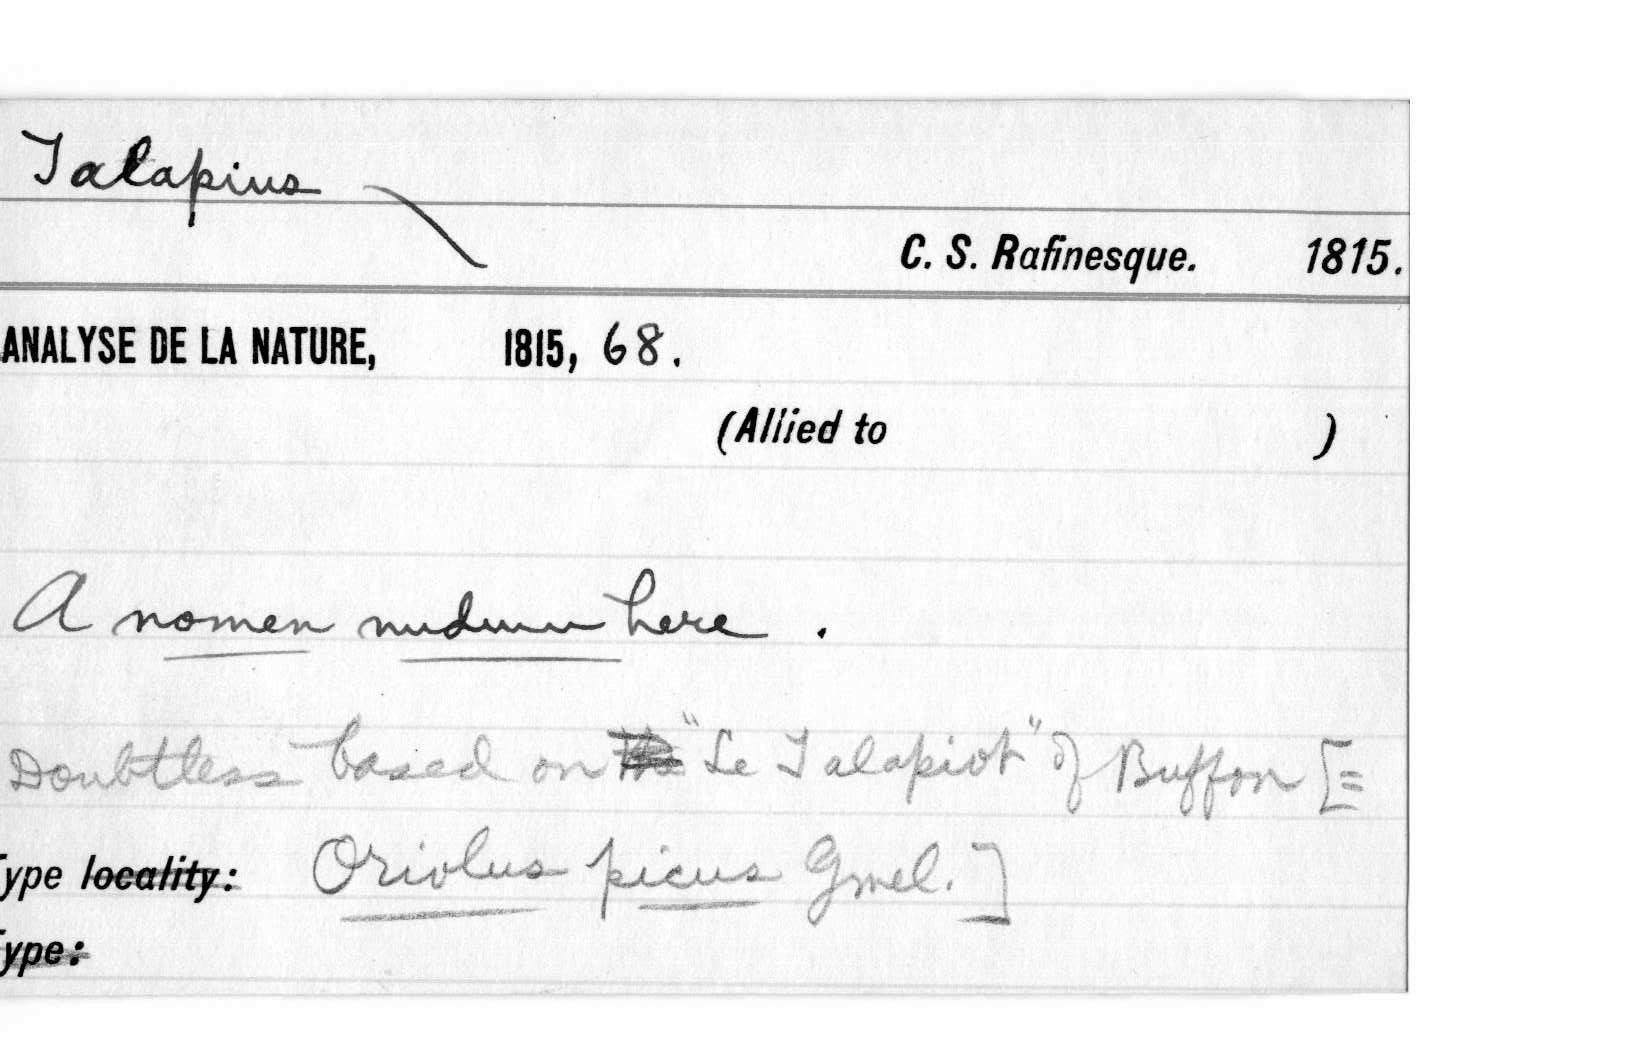 Talapius
C. S. Rafinesque. 1815.
ANALYSE DE LA NATURE, 1815, 68.
(Allied to )
A nomen nudum here .
Doubtless based on "Le Talapiot" of Buffon [=
Type locality: Oriolus picus Gmel.]
Type: